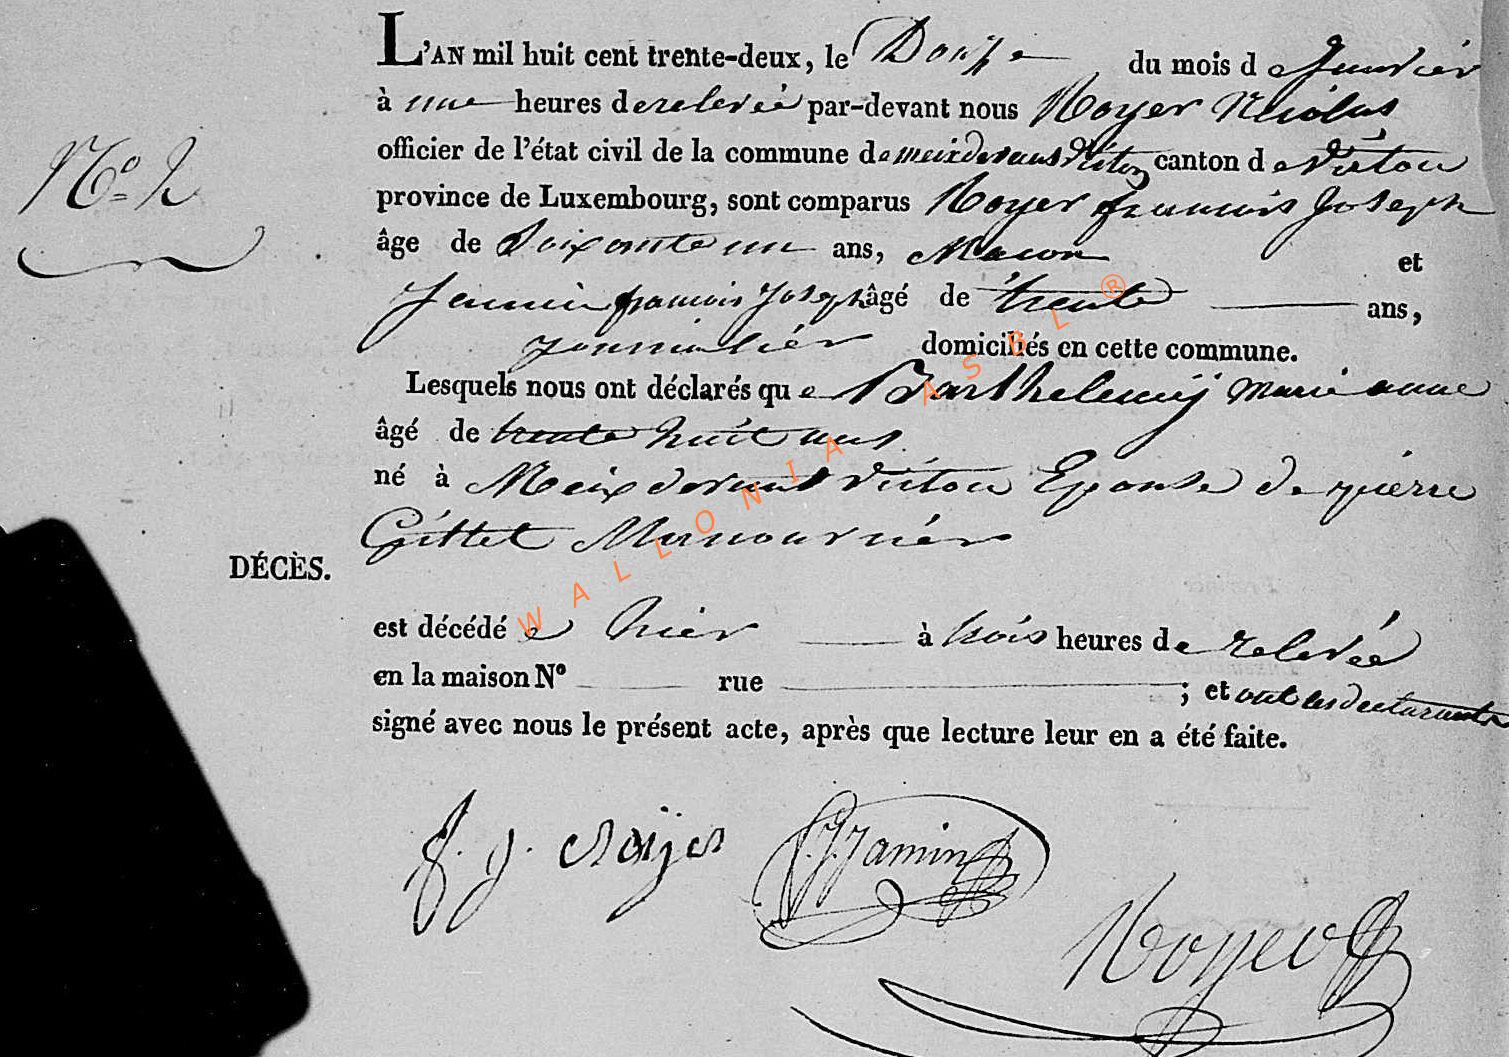 L'AN mil huit cent trente-deux, le Douze du mois de Janvier
à une heures de relevée par-devant nous Noyer Nicolas
officier de l'état civil de la commune de meix devant Virton canton de Virton
N.º 2
province de Luxembourg, sont comparus Noyer françois Joseph
âge de Soixante un ans, Macon et
Jamin françois Joseph âgé de trente ans,
journalier domiciliés en cette commune.
Lesquels nous ont déclarés que Barthelemij Marie anne
âgé de trente huit ans
né à Meix devant Virton Epouse de pierre
Gillet Manouvrier
DÉCÈS.
est décédée hier à trois heures de relevée
en la maison Nº rue ; et ont les declarants
signé avec nous le présent acte, après que lecture leur en a été faite.
f. j. Noijer
f. J. Jamin
Noyer
WALLONIA ASBL ®